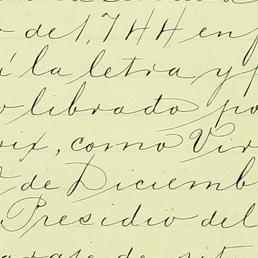 de 1,744 en
la letra, y
librado po
rix, como Vir
de Diciemb
Presidio del